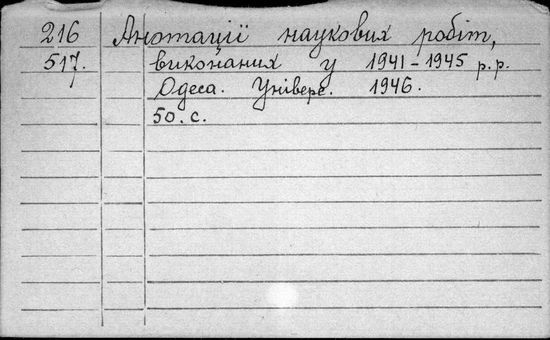 216 Анотації наукових робіт,
517. виконаних у 1941-1945 р.р.
Одеса. Універс. 1946.
50. с.